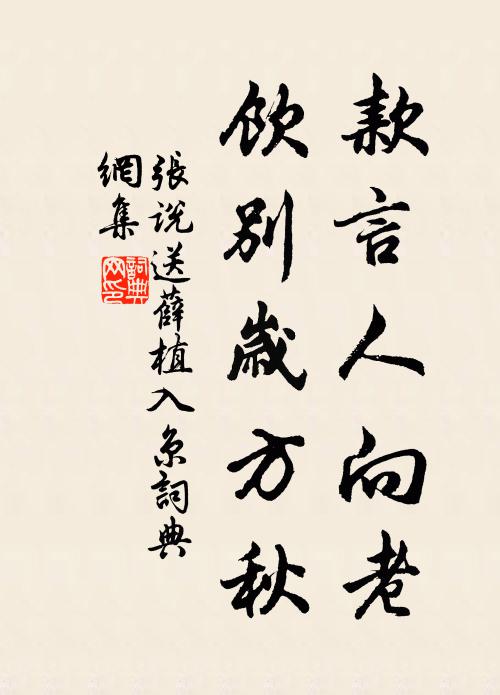 款言人向老
飲別歲方秋
張说送薛植入京詞典
網集
詞典網印